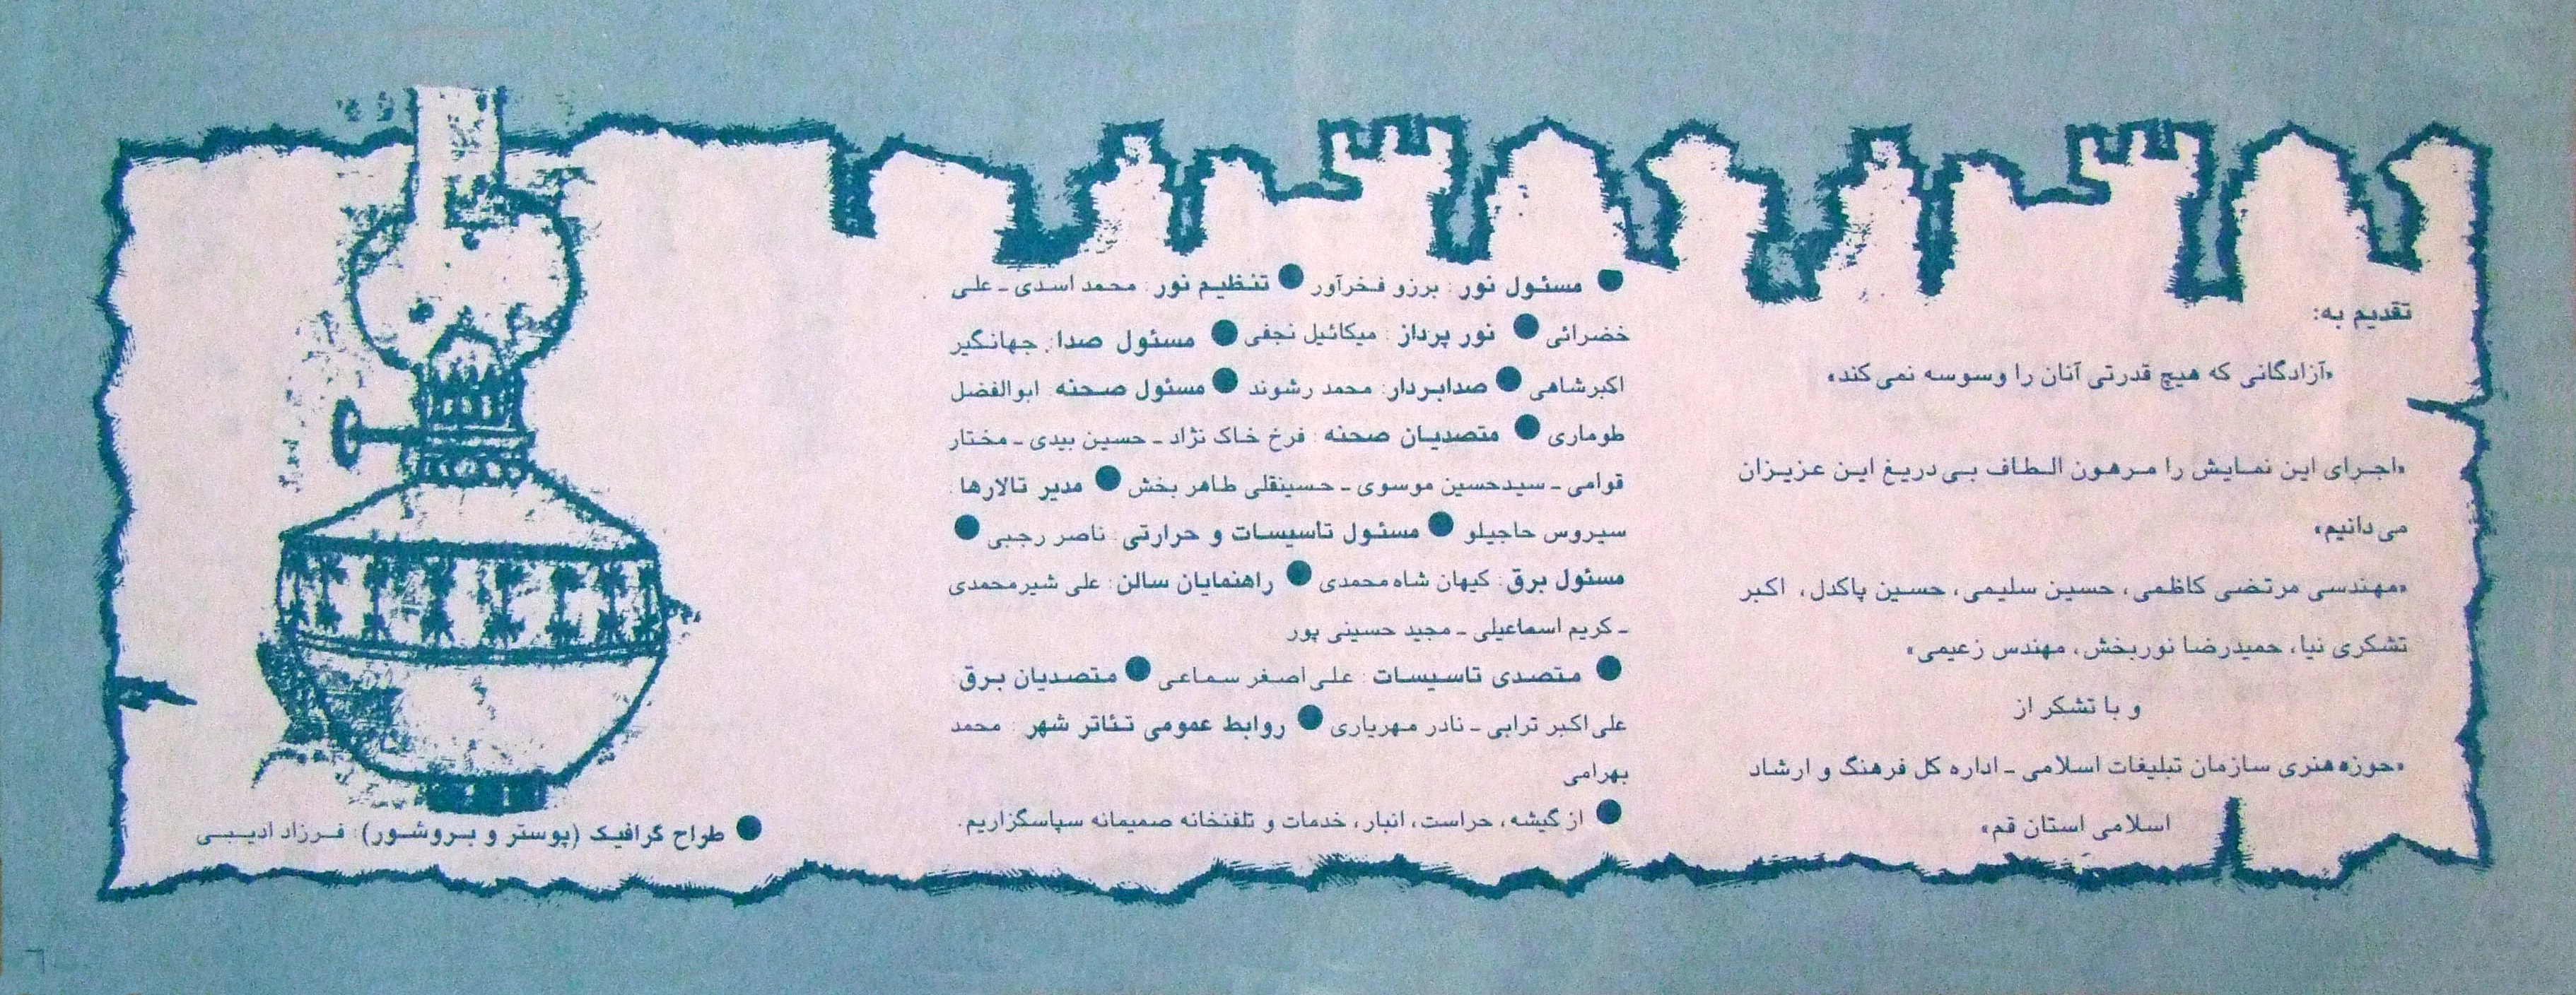 تقدیم به:
«آزادگانی که هیچ قدرتی آنان را وسوسه نمی کند»
«اجرای این نمایش را مرهون الطاف بی دریغ این عزیزان
می دانیم»
«مهندسی مرتضی کاظمی، حسین سلیمی، حسین پاکدل، اکبر
تشکری نیا، حمیدرضا نوربخش، مهندس زعیمی»
و با تشکر از
«حوزه هنری سازمان تبلیغات اسلامی ـ اداره کل فرهنگ و ارشاد
اسلامی استان قم»
● مسئول نور: برزو فخرآور ● تنظیم نور: محمد اسدی ـ علی
خضرائی ● نور پرداز: میکائیل نجفی ● مسئول صدا: جهانگیر
اکبرشاهی ● صدابردار: محمد رشوند ● مسئول صحنه: ابوالفضل
طوماری ● متصدیان صحنه: فرخ خاک نژاد ـ حسین بیدی ـ مختار
قوامی ـ سیدحسین موسوی ـ حسینقلی طاهر بخش ● مدیر تالارها:
سیروس حاجیلو ● مسئول تاسیسات و حرارتی: ناصر رجبی ●
مسئول برق: کیهان شاه محمدی ● راهنمایان سالن: علی شیرمحمدی
ـ کریم اسماعیلی ـ مجید حسینی پور
● متصدی تاسیسات: علی اصغر سماعی ● متصدیان برق:
علی اکبر ترابی ـ نادر مهریاری ● روابط عمومی تئاتر شهر: محمد
بهرامی
● از گیشه، حراست، انبار، خدمات و تلفنخانه صمیمانه سپاسگزاریم.
● طراح گرافیک (پوستر و بروشور): فرزاد ادیبی